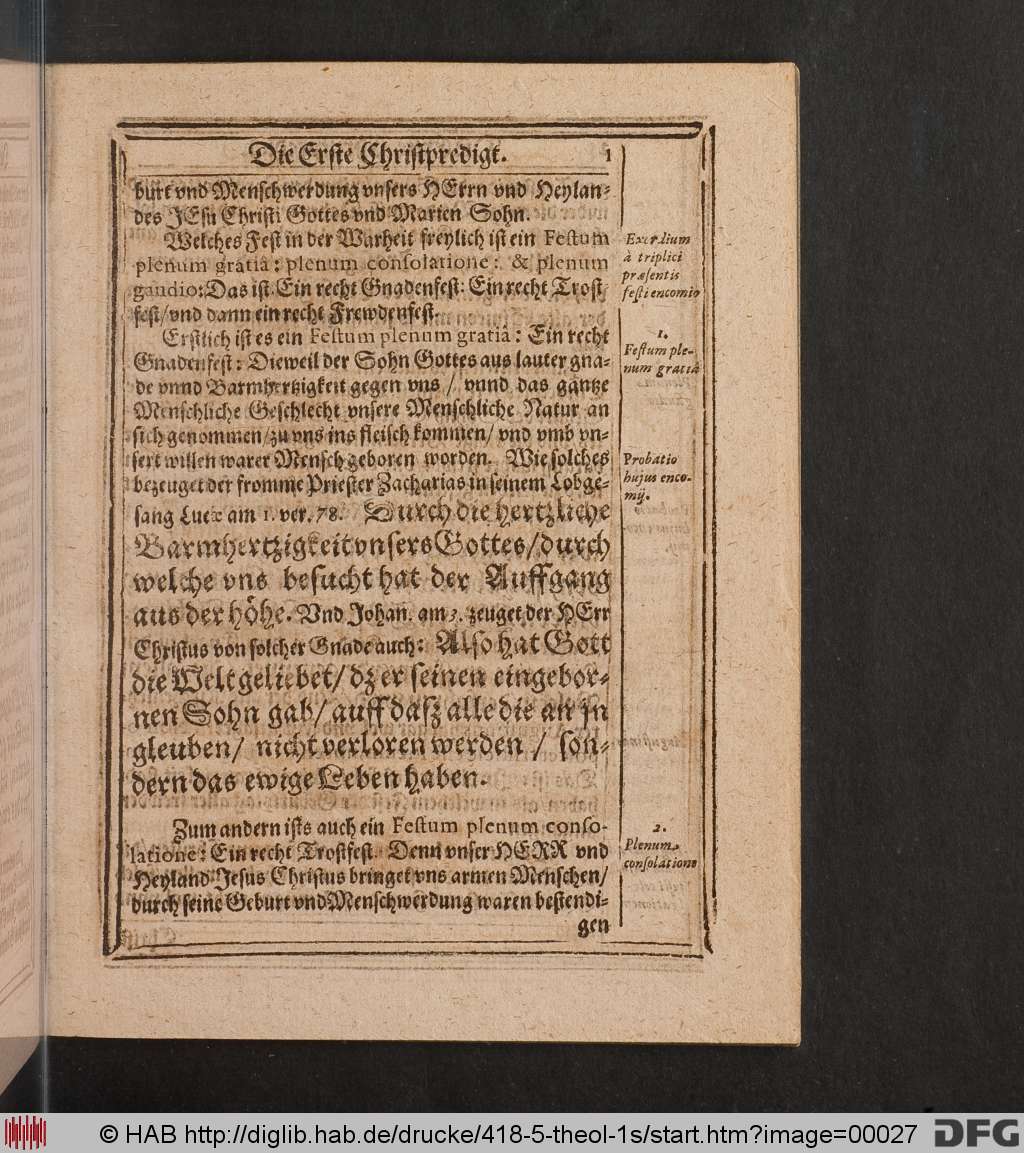 Die Erste Christpredigt. 1
burt vnd Menschwerdung vnsers HErrn vnd Heylan-
des JEsu Christi Gottes vnd Marien Sohn.
Welches Fest in der Warheit freylich ist ein Festum
plenum gratiâ: plenum consolatione: & plenum
gaudio: Das ist. Ein recht Gnadenfest: Ein recht Trost-
fest/ vnd dann ein recht Frewdenfest.
Exordium
à triplici
præsentis
festi encomio
Erstlich ist es ein Festum plenum gratiâ: Ein recht
Gnadenfest: Dieweil der Sohn Gottes aus lauter gna-
de vnnd Barmhertzigkeit gegen vns / vnnd das gantze
Menschliche Geschlecht vnsere Menschliche Natur an
sich genommen/ zu vns ins fleisch kommen/ vnd vmb vn-
sert willen warer Mensch geboren worden. Wie solches
bezeuget der fromme Priester Zacharias in seinem Lobge-
sang Lucæ am 1. ver. 78. Durch die hertzliche
Barmhertzigkeit vnsers Gottes/ durch
welche vns besucht hat der Auffgang
aus der höhe. Vnd Johan. am 3. zeuget der HErr
Christus von solcher Gnade auch: Also hat Gott
die Welt geliebet/ dz er seinen eingebor-
nen Sohn gab/ auff daß alle die an jn
gleuben/ nicht verloren werden / son-
dern das ewige Leben haben.
1.
Festum ple-
num gratiâ
Probatio
hujus enco-
mij.
Zum andern ists auch ein Festum plenum conso-
latione: Ein recht Trostfest. Denn vnser HERR vnd
Heyland Jesus Christus bringet vns armen Menschen/
durch seine Geburt vnd Menschwerdung waren bestendi-
gen
2.
Plenum
consolatione
© HAB http://diglib.hab.de/drucke/418-5-theol-1s/start.htm?image=00027
DFG